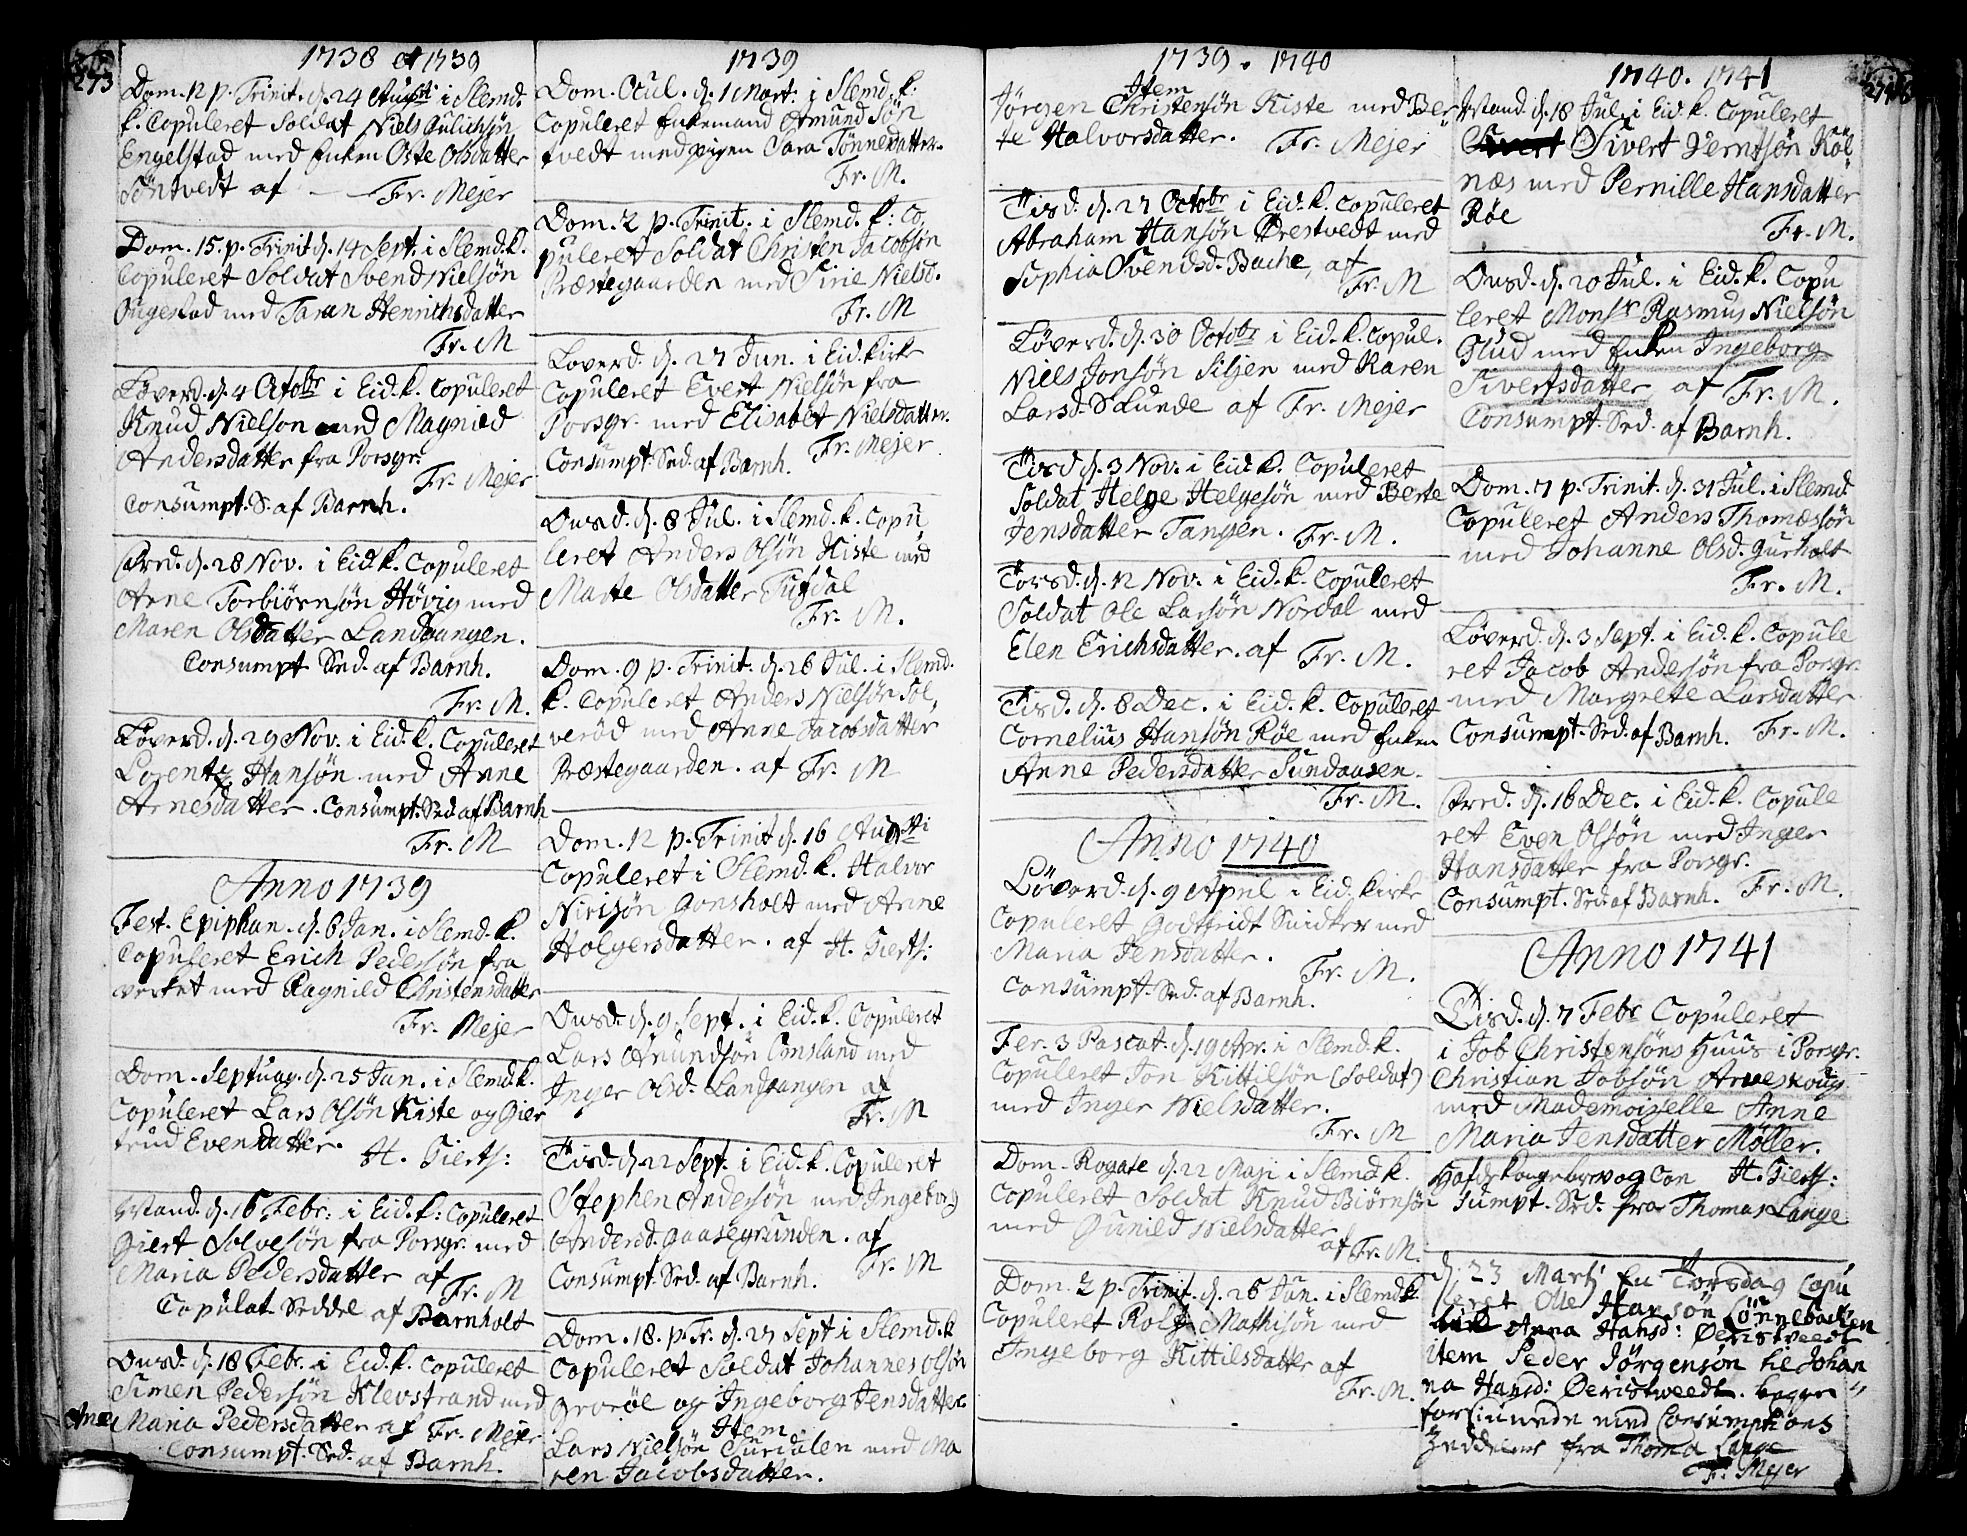 273
1738 et 1739
Dom. 12 p. Trinit. d. 24 August i Slemd.
k. Copuleret Soldat Niels Gulichsön
Engelstad med Enken Osle Olsdatter
Söntvedt af — Fr. Mejer
Dom. 15. p. Trinit d. 14 Sept. i Slemd. k.
Copuleret Soldat Svend Nielsön
med Taran Henrichsdatter
Fr. M
Löverd. d. 4 Octobr i Eid. k. Copuleret
Knud Nielson med Magnild
Andersdatter fra Porsgr.
Fr. Mejer
Consumpt. S. af Barnh.
Fred. d. 28 Nov. i Eid. k. Copuleret
Arne Torbiörnsön Hövig med
Maren Olsdatter Landgangen.
Consumpt. Sed. af Barnh.
Fr. M.
Löverd. d. 29 Nov. i Eid. k. Copuleret
Lorentz Hansön med Anne
Arnesdatter. Consumpt. Sed. af Barnh
Fr. M
Anno 1739
Fest. Epiphan. d. 6 Jan. i Slemd. k.
Copuleret Erich Pedersön fra
verket med Ragnild Christensdatter
Fr. Mejer
Dom. Septuag. d. 25 Jan. i Slemd. k.
Copuleret Lars Olsön Kiste og Gier
trud Evensdatter.
H. Gierts:
Mand. d. 16 Febr: i Eid. k: Copuleret
Giert Solvesön fra Porsgr. med
Maria Pedersdatter af
Fr. M
Copulat. Seddel af Barnholt
Onsd. d. 18 Febr. i Eid. k. Copuleret
Simen Pedersön Klevstrand med
Anne Maria Pedersdatter af Fr. Mejer
Consumpt. Sed. af Barnh.
1739
Dom. Ocul. d. 1 Mart: i Slemd. k.
Copuleret Enkemand Amund Sön
tvedt med pigen Sara Tönnesdatter.
Fr. M.
Dom. 2 p. Trinit. i Slemd. k: Co,
puleret Soldat Christen Jacobsön
Præstegaarden med Sirie Nielsd.
Fr. M
Loverd. d. 27 Jun. i Eid. Kirke
Copuleret Evert Nielsön fra
Porsgr. med Elisabet Nielsdatter.
Consumpt. Sed. af Barnh. Fr. Mejer
Onsd. d. 8 Jul. i Slemd. k. Copu
leret Anders Olsön Kiste med
Marte Olsdatter Tufdal
Fr. M.
Dom. 9 p. Trinit. d. 26 Jul. i Slemd.
k. Copuleret Anders Nielsön Sol,
veröd med Anne Jacobsdatter
Præstegaarden. af Fr. M
Dom. 12 p. Trinit d. 16 Augusti
Copuleret i Slemd. k. Halvor
Nielsön Gonsholt med Anne
Holgersdatter. af H. Gierts:
Onsd. d. 9 Sept. i Eid. k. Copuleret
Lars Amundsön Omsland med
Inger Olsd. Landgangen af
Fr. M
Tisd. d. 22 Sept. i Eid. k. Copuleret
Stephen Andersön med Ingeborg
Andersd. Gaasegrunden. af
Consumpt. Sed. af Barnh. Fr. M
Dom. 18. p. Tr. d. 27 Sept i Slemd. k
Copuleret Soldat Johannes Olsön
Groröl og Ingeborg Jensdatter
Item
Lars Nielsön Surdalen med Ma
ren Jacobsdatter.
1739. 1740
Item
Jörgen Christensön Kiste med Ber
te Halvorsdatter. Fr. Mejer
Tisd. d. 27 Octobr i Eid. k. Copuleret
Abraham Hansön Ørestvedt med
Sophia Svendsd. Bache, af
Fr. M
Löverd. d. 30 Octobr i Eid. k. Copul.
Niels Jonsön Siljen med Karen
Larsd. S Lunde af Fr. Mejer
Tisd. d. 3 Nov. i Eid. k. Copuleret
Soldat Helge Helgesön med Berte
Jensdatter Tangen. Fr. M.
Torsd. d. 12 Nov. i Eid. k. Copuleret
Soldat Ole Larsön Nordal med
Elen Erichsdatter. af Fr. M.
Tisd. d. 8 Dec. i Eid. k. Copuleret
Cornelius Hansön Röe med Enken
Anne Pedersdatter Sundaasen.
Fr. M.
Anno 1740
Löverd. d. 9 April i Eid. Kirke
Copuleret Godtfridt Snidker med
Maria Jensdatter.
Fr. M.
Consumpt. Sed. af Barnh.
Fer. 3 Pascat. d. 19 Apr. i Slemd. k.
Copuleret Jon Kittilsön (Soldat)
med Inger Nielsdatter.
Fr. M
Dom. Rogate d. 22 Maji i Slemd. k.
Copuleret Soldat Knud Biörnsön
med Gunild Nielsdatter
af Fr. M.
Dom. 2 p. Trinit. d. 26 Jun. i Slemd. k.
Copuleret Rolf Mathisön med
Ingeborg Kittilsdatter af
Fr. M.
1740. 1741
Mand. d. 18 Jul. i Eid. k. Copuleret
Sivert Berntsön Röl
næs med Pernille Hansdatter
Röe
Fr. M.
Onsd. d. 20 Jul. i Eid. k. Copu
leret Monsr Rasmus Nielsön
Glud med Enken Ingeborg
Sivertsdatter af Fr. M.
Consumpt. Sed. af Barnh.
Dom. 7 p. Trinit. d. 31 Jul. i Slemd.
Copuleret Anders Thomæsön
med Johanne Olsd. Gurholt
Fr. M.
Löverd. d. 3 Sept. i Eid. k. Copule
ret Jacob Andersön fra Porsgr.
med Margrete Larsdatter
Consumpt. Sed. af Barnh. Fr. M.
Fred. d. 16 Dec. i Eid. k. Copule
ret Even Olsön med Inger
Hansdatter fra Porsgr.
Consumpt. Sed. af Barnh. Fr. M.
Anno 1741
Tisd. d. 7 Febr Copuleret
i Job Christensöns Huus i Porsgr.
Christian Jobsön Arveskoug
med Mademoiselle Anne
Maria Jensdatter Möller.
og Con H. Gierts:
sumpt. Sed. fra Thomas Lange
d. 23 Martj En Torsdag Copu
leret Olle Hansön Lönnebacken
Anna Hansd: Øeristweedt
Item Peder Jörgensön til Johan
na Hansd: Øeristweedt. begge
forsiunede med Consumptions
Zeddeler fra Thoma Lange
F: Mejer